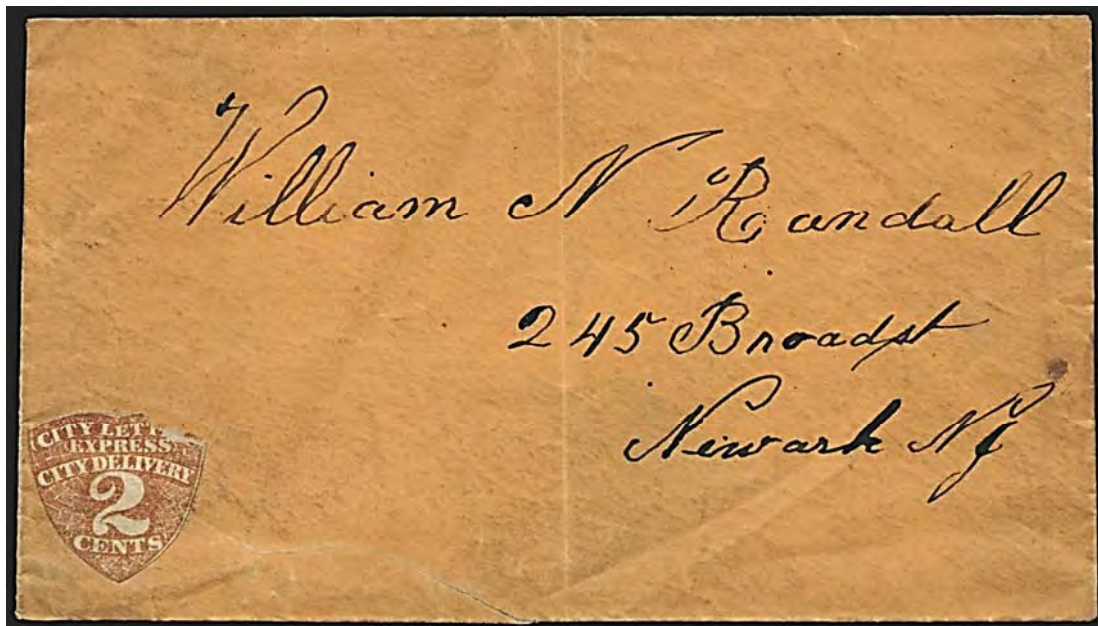 William N Randall
245 Broad st
Newark NJ
CITY LETT
EXPRESS
CITY DELIVERY
2
CENTS